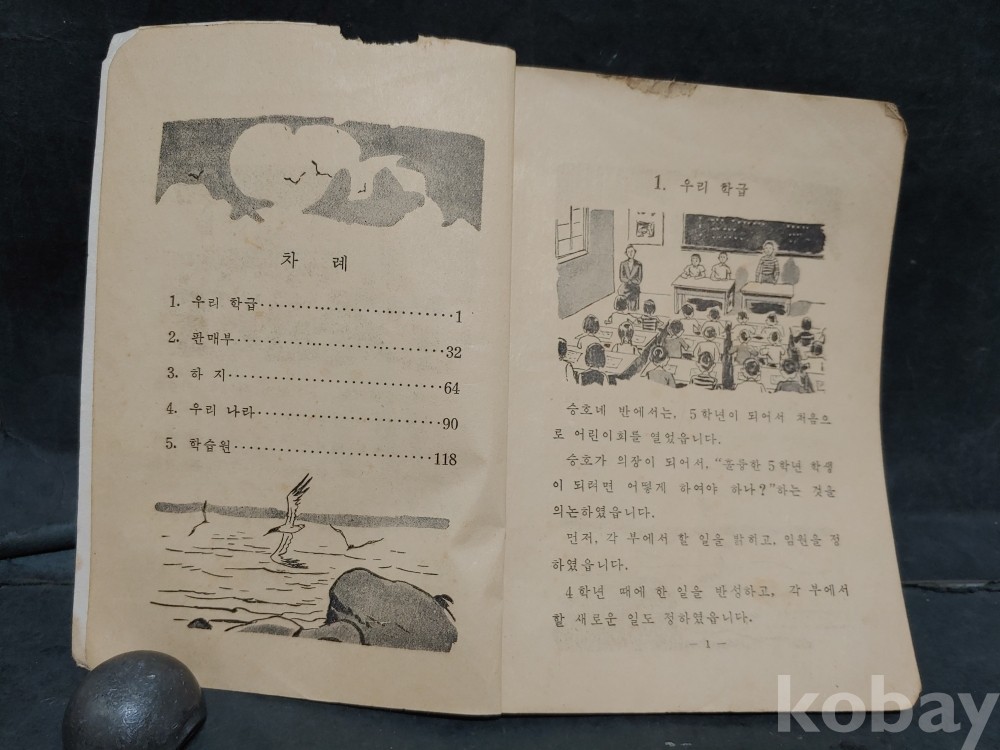 차 례
1. 우리 학급 1
2. 판매부 32
3. 하 지 64
4. 우리 나라 90
5. 학습원 118
1. 우리 학급
승호네 반에서는, 5학년이 되어서 처음으
로 어린이회를 열었읍니다.
승호가 의장이 되어서, “훌륭한 5학년 학생
이 되려면 어떻게 하여야 하나?”하는 것을
의논하였읍니다.
먼저, 각 부에서 할 일을 밝히고, 임원을 정
하였읍니다.
4학년 때에 한 일을 반성하고, 각 부에서
할 새로운 일도 정하였읍니다.
— 1 —
kobay